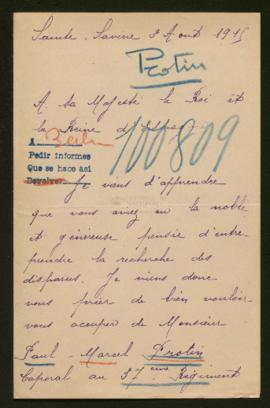 Sainte-Savine 8 Août 1915
Protin
A sa Majesté le Roi et
la Reine d'Espagne
100809
A Berlin
Pedir informes
Que se hace así
Devolver
Je viens d'apprendre
que vous avez eu la noble
et généreuse pensée d'entre-
prendre la recherche des
disparus. Je viens donc
vous prier de bien vouloir
vous occuper de Monsieur
Paul-Marcel Protin
Caporal au 37ème Régiment